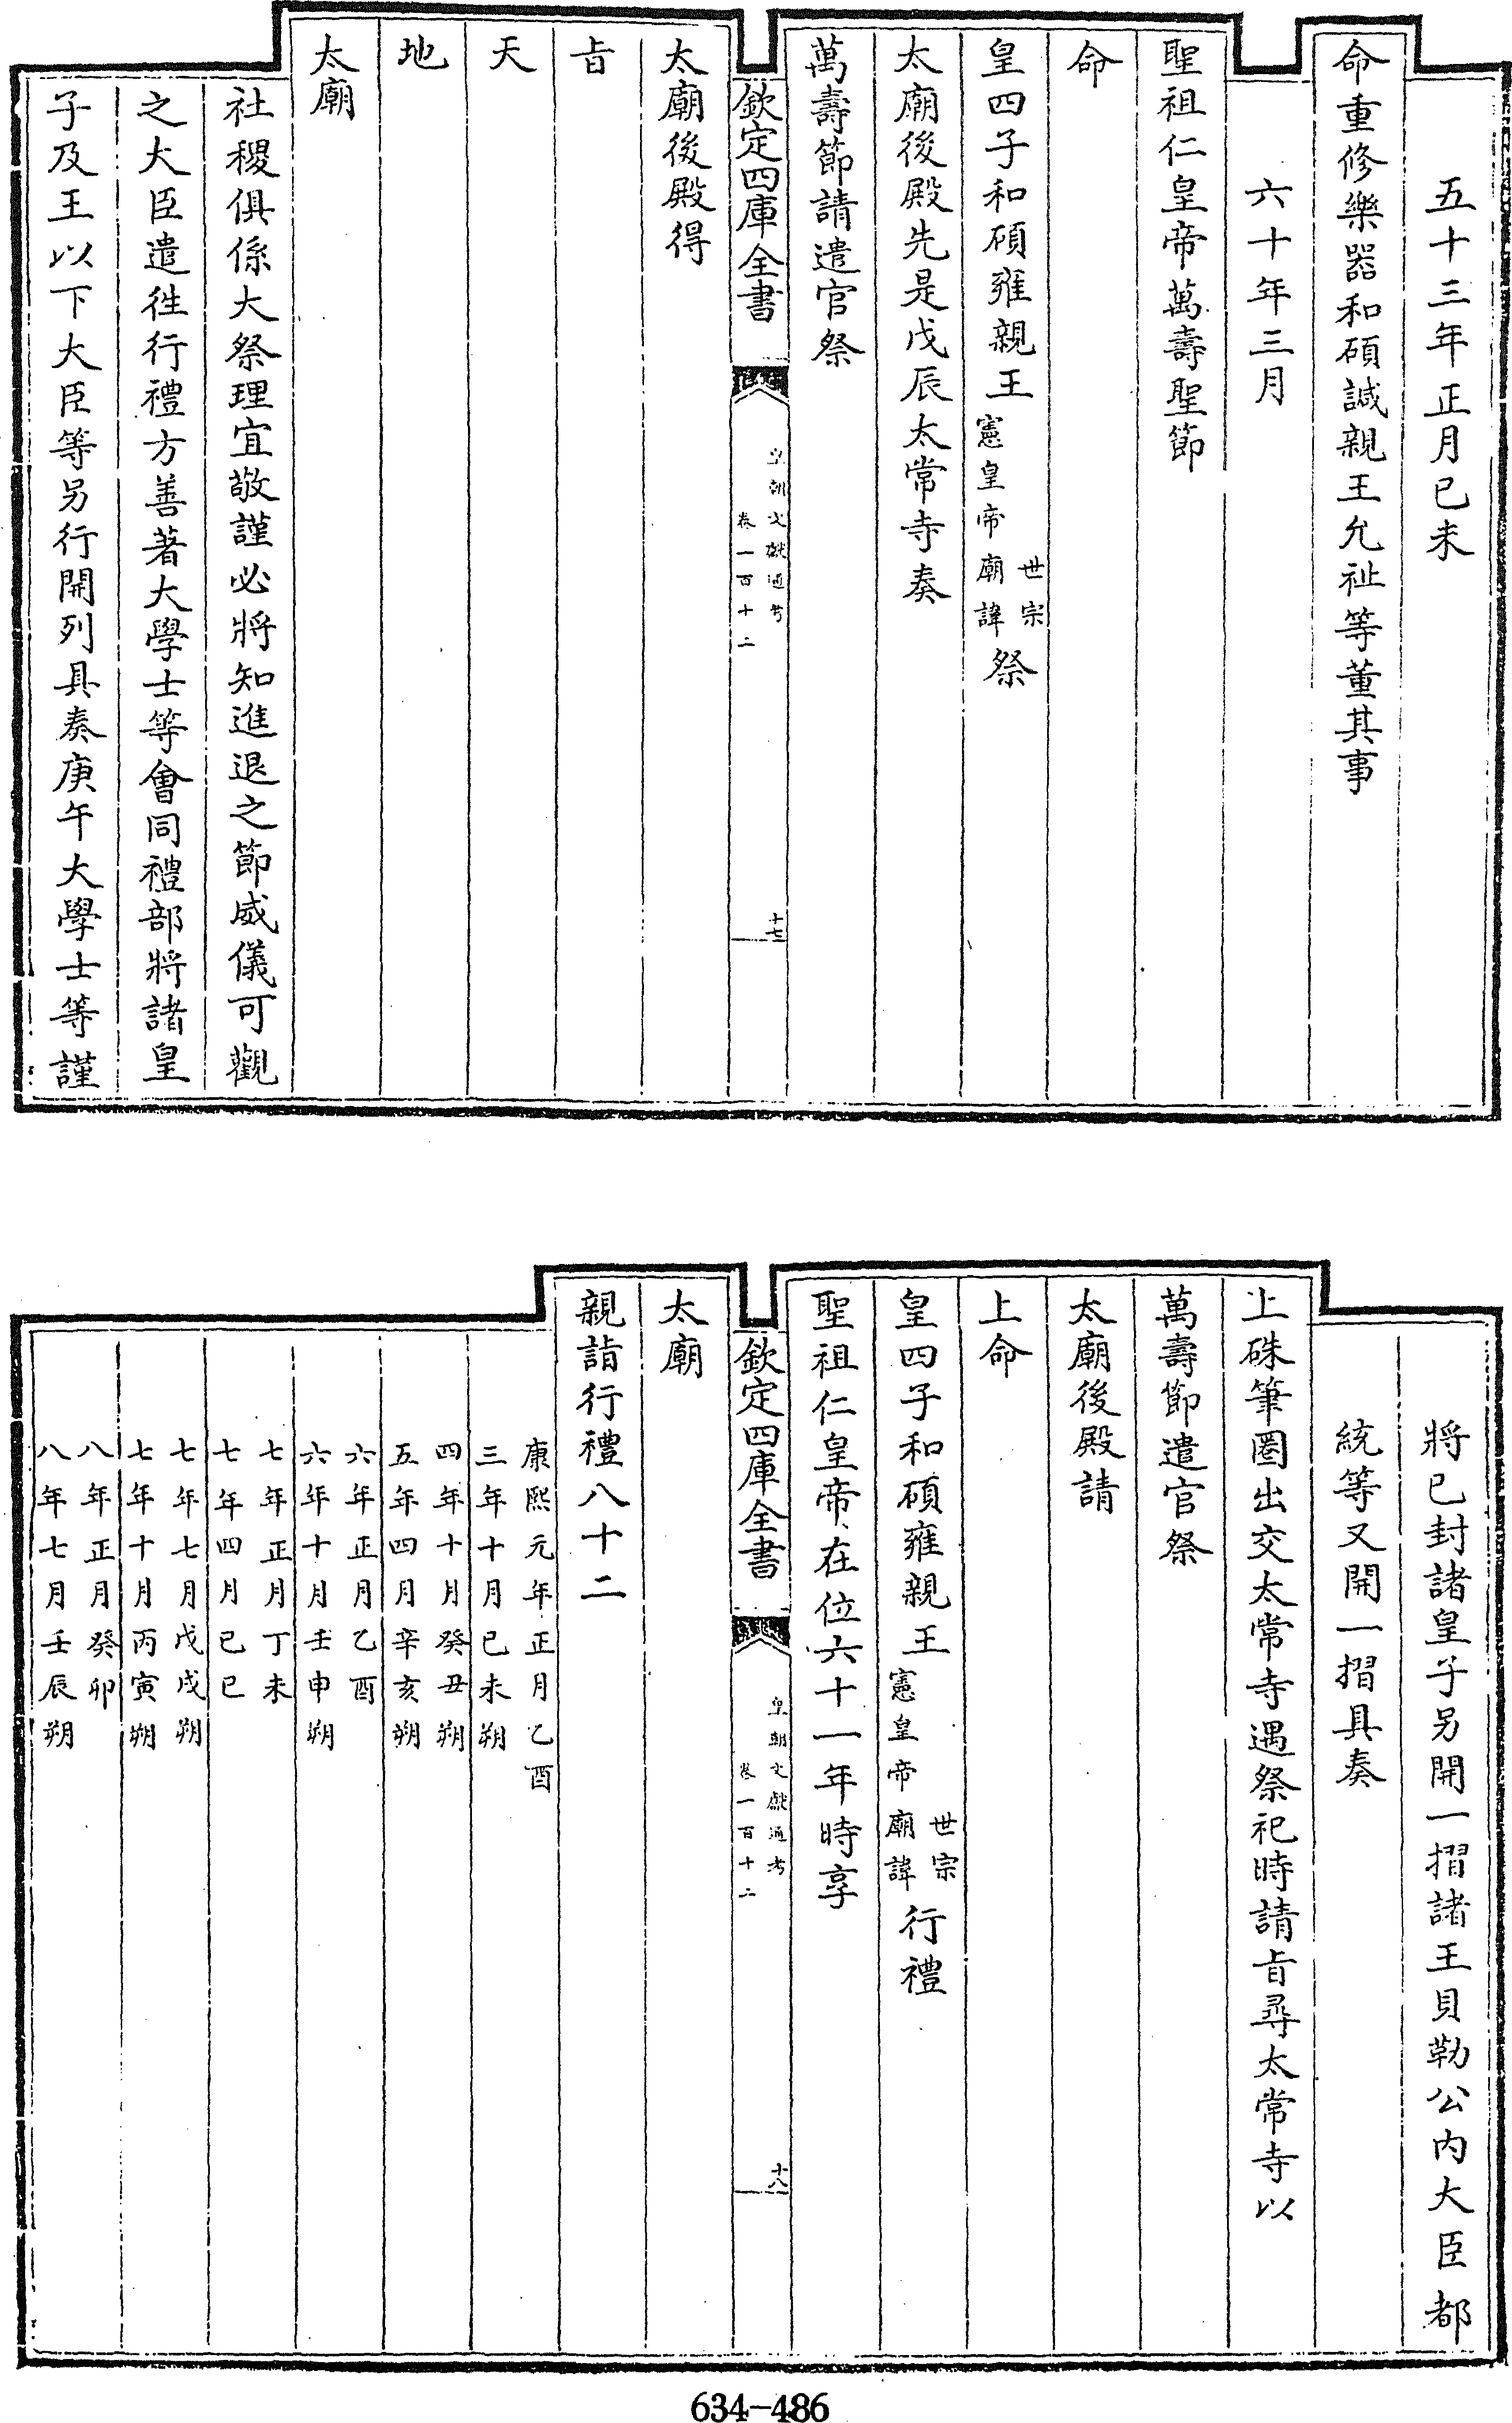 五十三年正月已未
命重修樂器和碩誠親王允祉等董其事
六十年三月
聖祖仁皇帝萬壽聖節
命
皇四子和碩雍親王世宗憲皇帝廟諱祭
太廟後殿先是戊辰太常寺奏
萬壽節請遣官祭
欽定四庫全書
皇朝文獻通考
卷一百十二
十七
太廟後殿得
㫖
天
地
太廟
社稷俱係大祭理宜敬謹必將知進退之節威儀可觀
之大臣遣徃行禮方善著大學士等會同禮部將諸皇
子及王以下大臣等另行開列具奏庚午大學士等謹
將已封諸皇子另開一摺諸王貝勒公内大臣都
統等又開一摺具奏
上硃筆圏出交太常寺遇祭祀時請㫖尋太常寺以
萬壽節遣官祭
太廟後殿請
上命
皇四子和碩雍親王世宗憲皇帝廟諱行禮
聖祖仁皇帝在位六十一年時享
欽定四庫全書
皇朝文獻通考
卷一百十二
十八
太廟
親詣行禮八十二
康熙元年正月乙酉
三年十月已未朔
四年十月癸丑朔
五年四月辛亥朔
六年正月乙酉
六年十月壬申朔
七年正月丁未
七年四月已巳
七年七月戊戌朔
七年十月丙寅朔
八年正月癸卯
八年七月壬辰朔
634-486